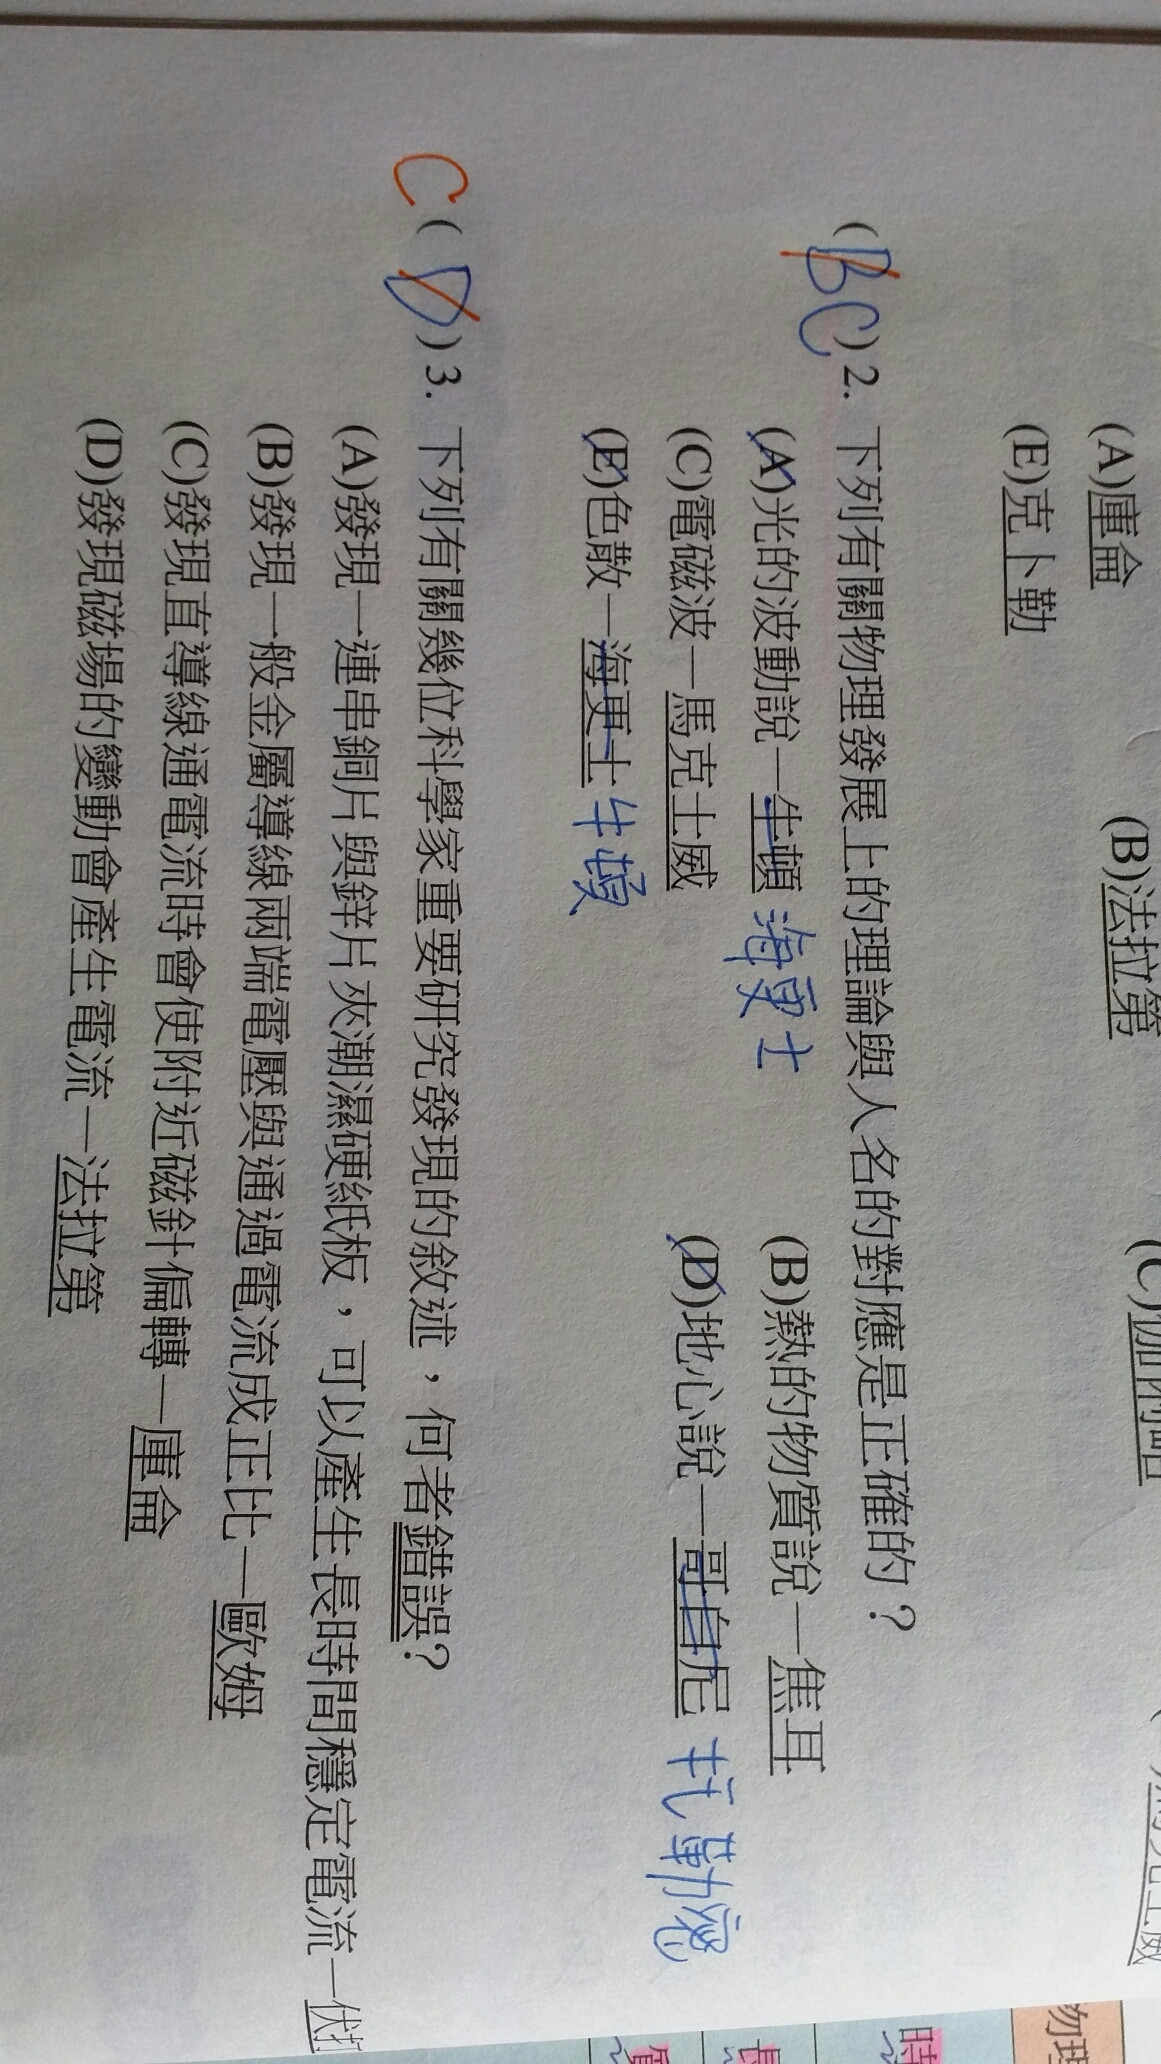 (A)庫侖 (B)法拉第 (C)伽利略
(E)克卜勒
(BC)2. 下列有關物理發展上的理論與人名的對應是正確的？
(A)光的波動說—牛頓 海更士 (B)熱的物質說—焦耳
(C)電磁波—馬克士威 (D)地心說—哥白尼 托勒密
(E)色散—海更士 牛頓
C (D)3. 下列有關幾位科學家重要研究發現的敘述，何者錯誤？
(A)發現一連串銅片與鋅片夾潮濕硬紙板，可以產生長時間穩定電流—伏打
(B)發現一般金屬導線兩端電壓與通過電流成正比—歐姆
(C)發現直導線通電流時會使附近磁針偏轉—庫侖
(D)發現磁場的變動會產生電流—法拉第
物理
時
長
質